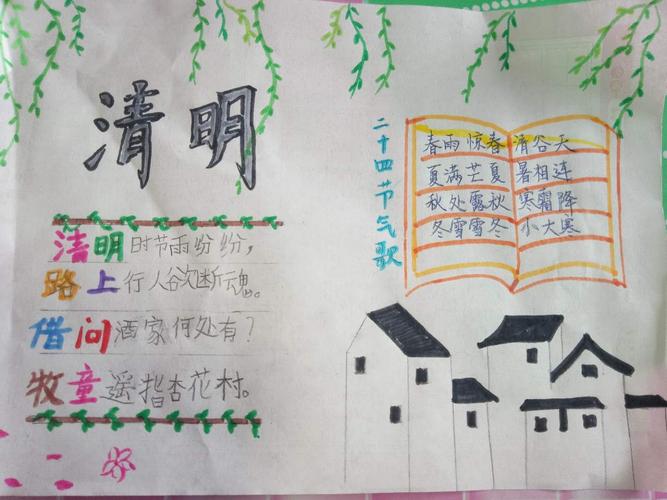 清明
清明时节雨纷纷，
路上行人欲断魂。
借问酒家何处有？
牧童遥指杏花村。
二十四节气歌
春雨惊春清谷天
夏满芒夏暑相连
秋处露秋寒霜降
冬雪雪冬小大寒